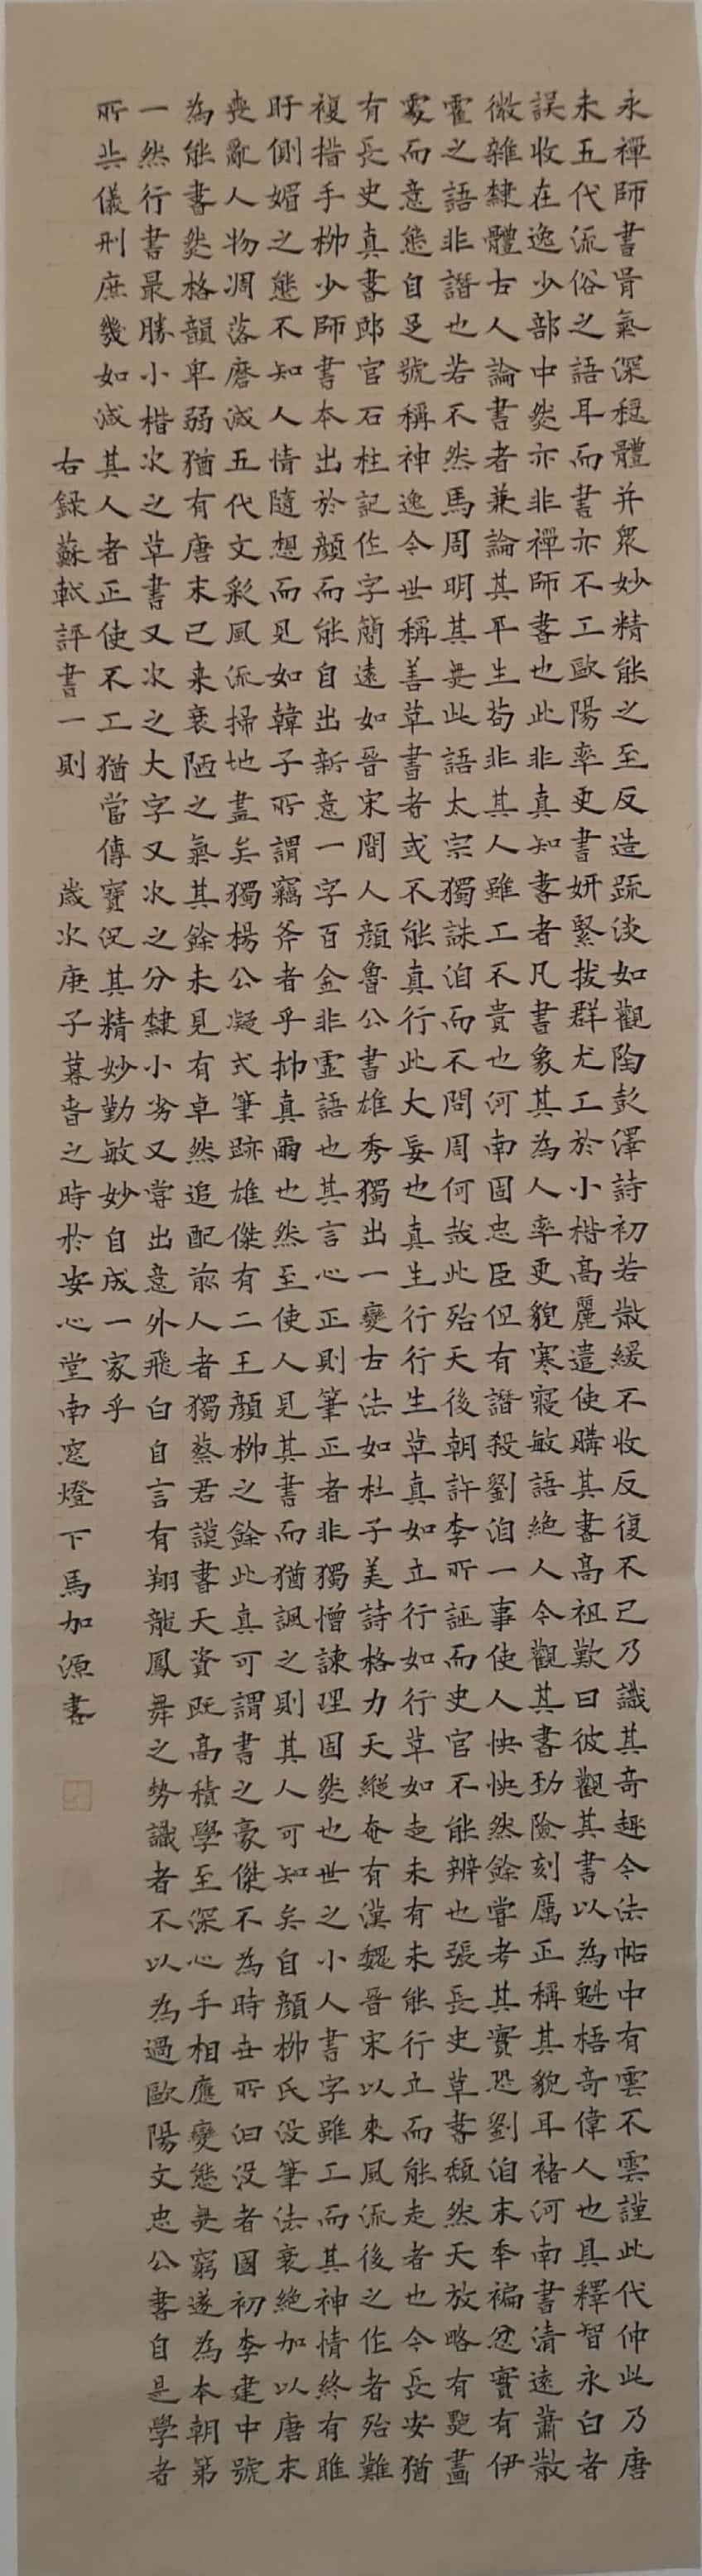 永禪師書骨氣深穩體并眾妙精能之至反造疏淡如觀陶彭澤詩初若散緩不收反復不已乃識其奇趣今法帖中有雲不雲謹此代伸此乃唐
未五代流俗之語耳而書亦不工歐陽率更書妍緊拔群尤工於小楷高麗遣使購其書高祖歎曰彼觀其書以為魁梧奇偉人也具釋智永白者
誤收在逸少部中然亦非禪師書也此非真知書者凡書象其為人率更貌寒寢敏語絕人今觀其書勁險刻厲正稱其貌耳褚河南書清遠蕭散
微雜隸體古人論書者兼論其平生苟非其人雖工不貴也河南固忠臣但有譖殺劉洎一事使人怏怏然餘嘗考其實恐劉洎末年褊忿實有伊
霍之語非譖也若不然馬周明其無此語太宗獨誅洎而不問周何哉此殆天後朝許李所誣而史官不能辨也張長史草書頹然天放略有點畫
處而意態自足號稱神逸今世稱善草書者或不能真行此大妄也真生行行生草真如立行如行草如走未有未能行立而能走者也今長安猶
有長史真書郎官石柱記作字簡遠如晉宋間人顏魯公書雄秀獨出一變古法如杜子美詩格力天縱奄有漢魏晉宋以來風流後之作者殆難
複措手柳少師書本出於顏而能自出新意一字百金非虛語也其言心正則筆正者非獨憎諫理固然也世之小人書字雖工而其神情終有睢
盱側媚之態不知人情隨想而見如韓子所謂竊斧者乎抑真爾也然至使人見其書而猶諷之則其人可知矣自顏柳氏沒筆法衰絕加以唐末
喪亂人物凋落磨滅五代文采風流掃地盡矣獨楊公凝式筆跡雄傑有二王顏柳之餘此真可謂書之豪傑不為時世所汩沒者國初李建中號
為能書然格韻卑弱猶有唐末已來衰陋之氣其餘未見有卓然追配前人者獨蔡君謨書天資既高積學至深心手相應變態無窮遂為本朝第
一然行書最勝小楷次之草書又次之大字又次之分隸小劣又嘗出意外飛白自言有翔龍鳳舞之勢識者不以為過歐陽文忠公書自是學者
所共儀刑庶幾如減其人者正使不工猶當傳寶況其精妙勤敏妙自成一家乎
右錄蘇軾評書一則 歲次庚子暮春之時於安心堂南窗燈下馬加源書